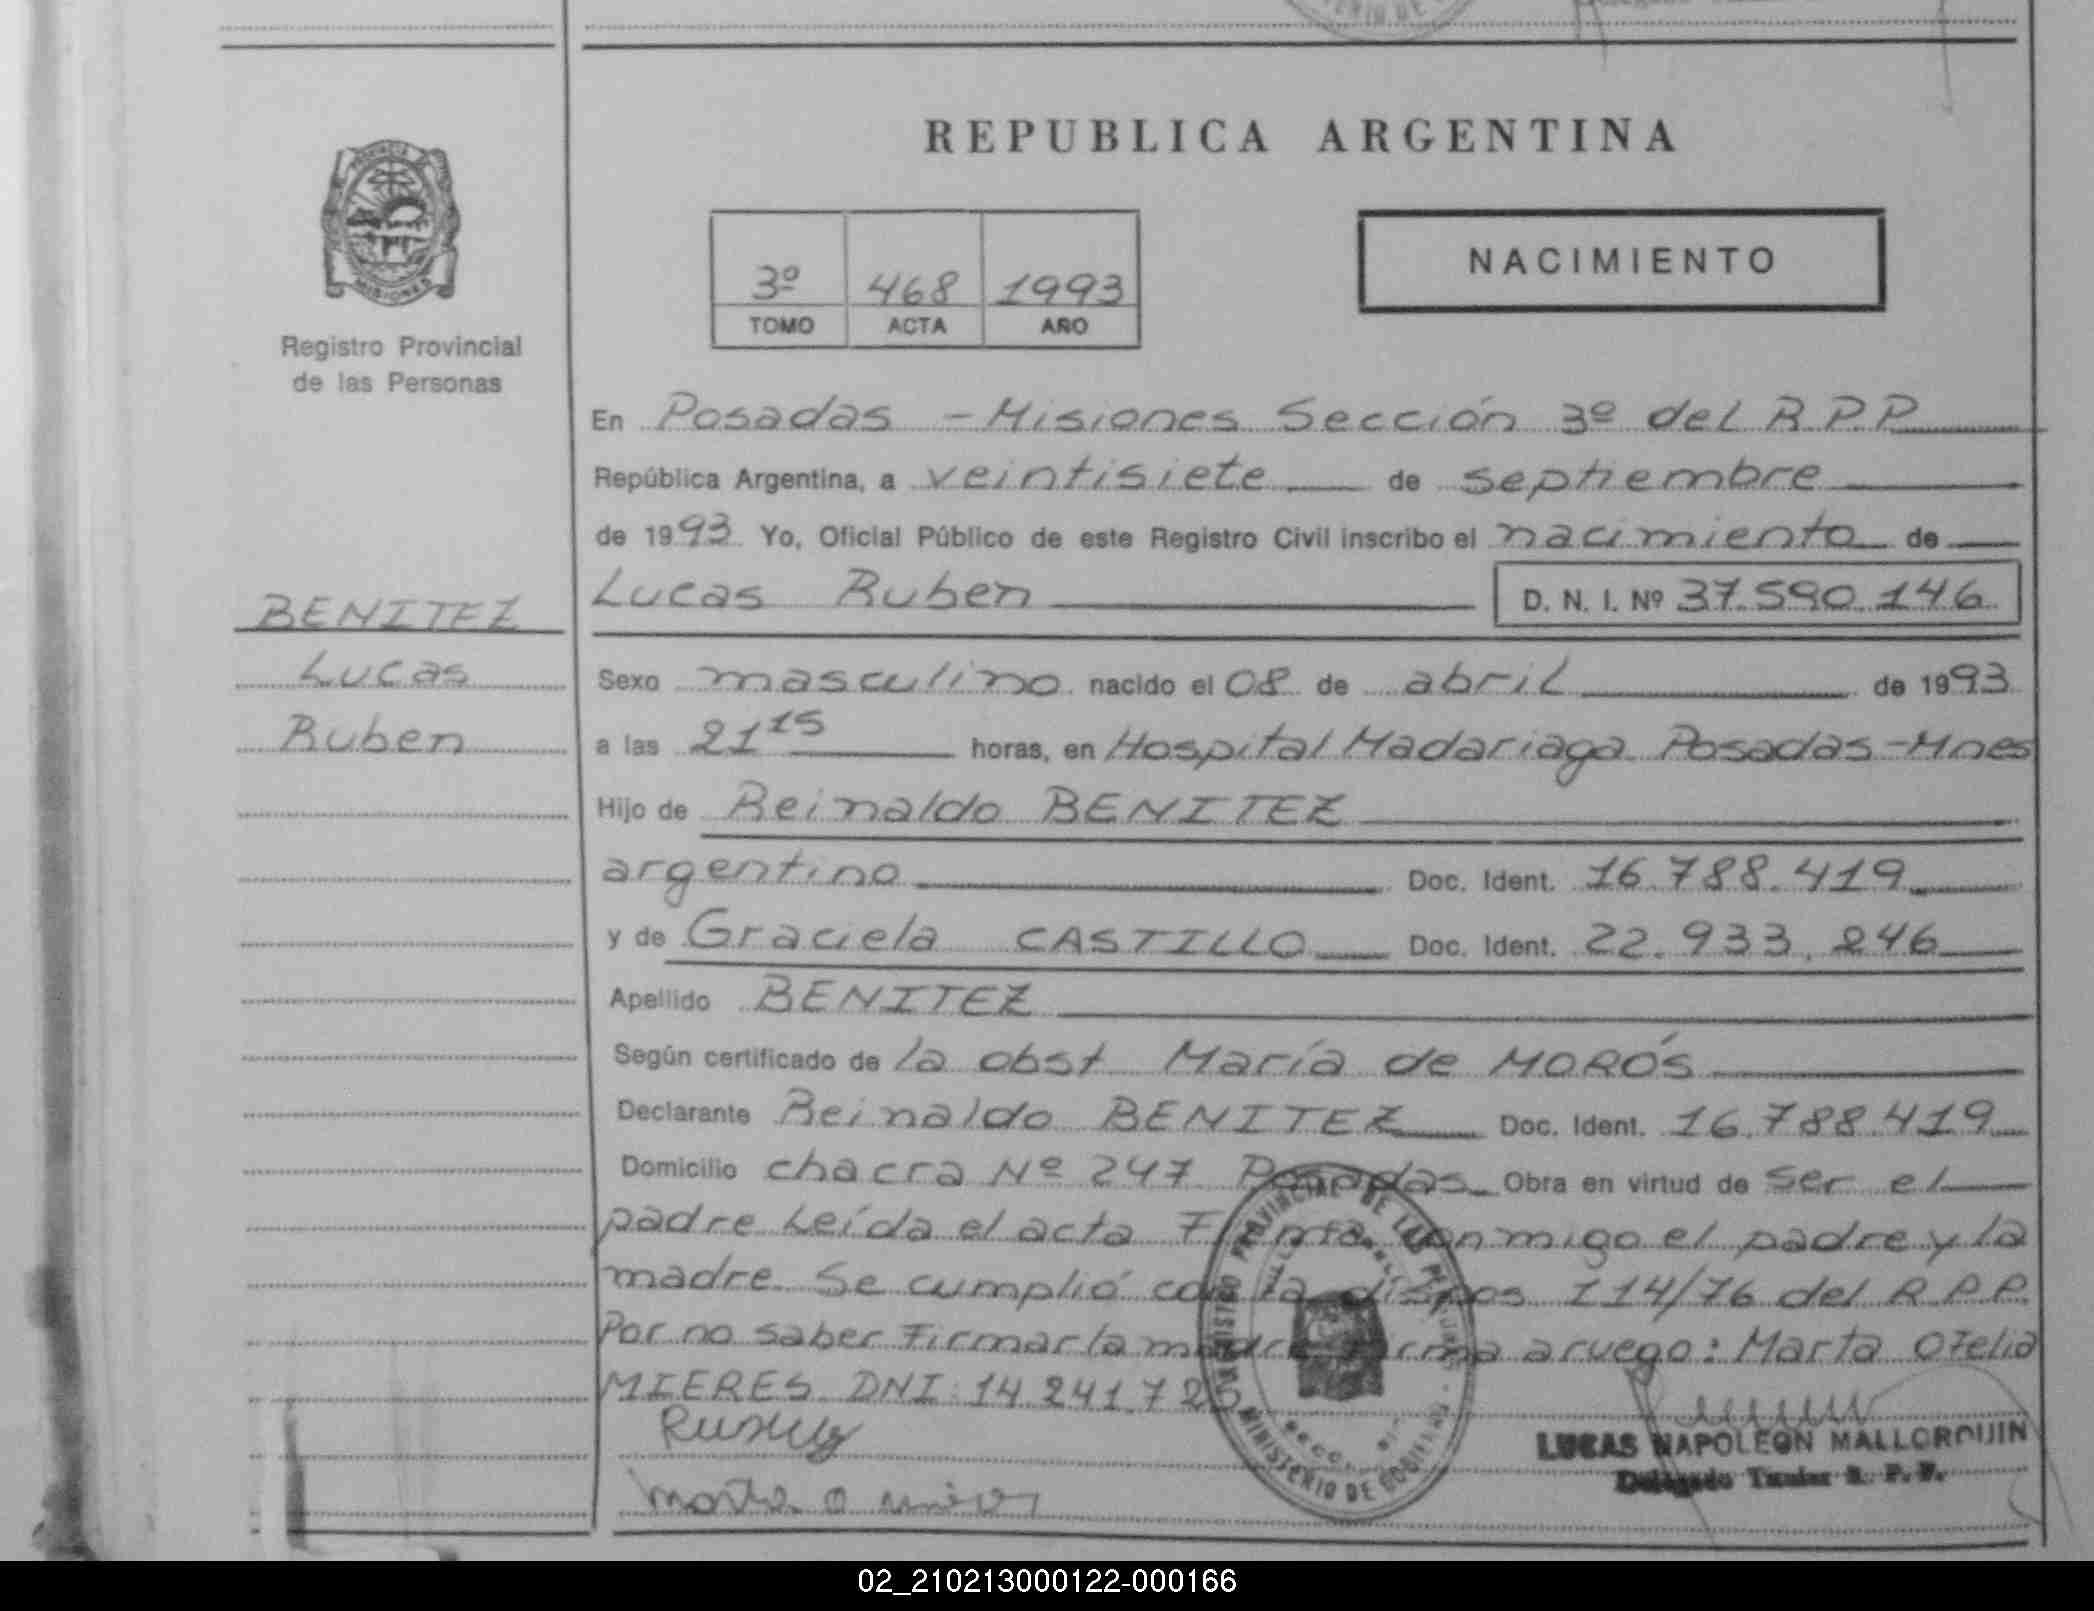 REPUBLICA ARGENTINA
PROVINCIA DE
MISIONES
Registro Provincial
de las Personas
3º 468 1993
TOMO ACTA AÑO
NACIMIENTO
BENITEZ
Lucas
Ruben
En Posadas - Misiones Sección 3º del R.P.P.
República Argentina, a veintisiete de septiembre
de 1993 Yo, Oficial Público de este Registro Civil inscribo el nacimiento de
Lucas Ruben D. N. I. Nº 37.590.146
Sexo masculino nacido el 08 de abril de 1993
a las 21 15 horas, en Hospital Madariaga Posadas-Mnes
Hijo de Reinaldo BENITEZ
argentino Doc. Ident. 16.788.419
y de Graciela CASTILLO Doc. Ident. 22.933.246
Apellido BENITEZ
Según certificado de la obst María de MORÓS
Declarante Reinaldo BENITEZ Doc. Ident. 16.788.419
Domicilio chacra Nº 247 Posadas Obra en virtud de ser el
padre Leída el acta Firma conmigo el padre y la
madre Se cumplió con la dispos 114/76 del R.P.P.
Por no saber firmar la madre firma a ruego: Marta Ofelia
MIERES DNI 14.241.72
REGISTRO PROVINCIAL DE LAS PERSONAS
MINISTERIO DE GOBIERNO
LUCAS NAPOLEON MALLORQUIN
Delegado Titular R. P. P.
02_210213000122-000166